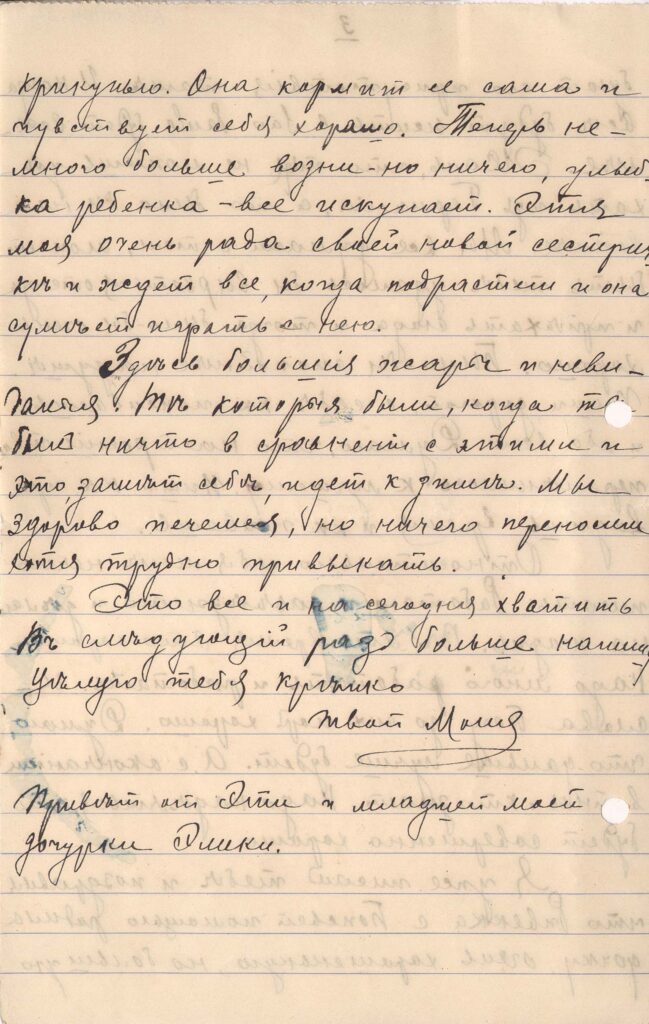 крикунью. Она кормит ее сама и
чувствует себя хорошо. Теперь не-
много больше возни - но ничего, улыб-
ка ребенка - все искупает. Этя
моя очень рада своей новой сестрич-
кѣ и ждет все, когда подрастет и она
сумѣет играть с нею.
Здѣсь большія жары и неви-
данныя. Тѣ которыя были, когда ты
был ничто в сравненіи с этими и
это, замѣть себѣ, идет к зимѣ. Мы
здорово печемся, но ничего переносим
хотя трудно привыкать.
Это все и на сегодня хватить
Въ слѣдующій раз больше напишу
Цѣлую тебя крѣпко
твой Моня
Привѣт от Эти и младшей моей
дочурки Элики.